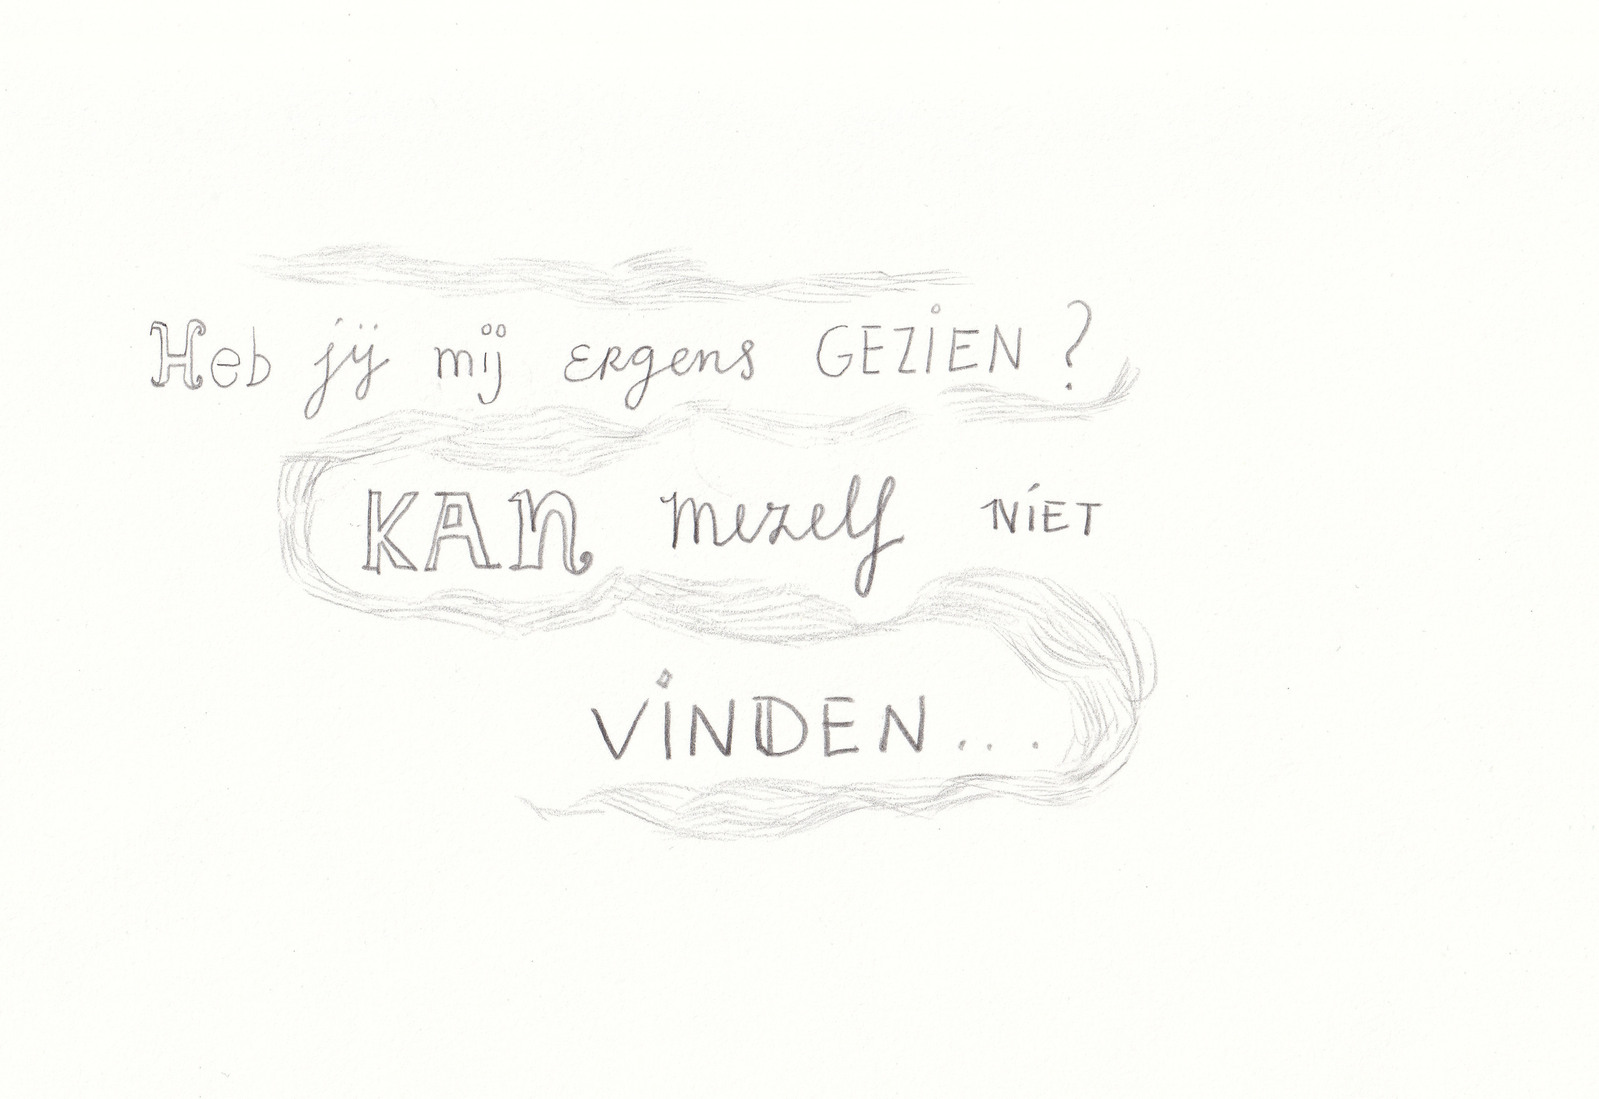 Heb jij mij ergens GEZIEN?
KAN mezelf NIET
VINDEN...